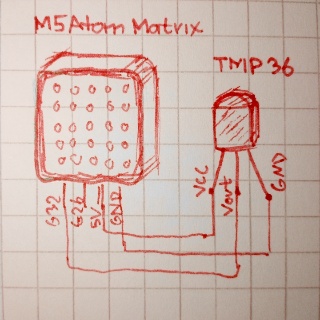 M5Atom Matrix
TMP36
G32
G26
5V
GND
VCC
Vout
GND